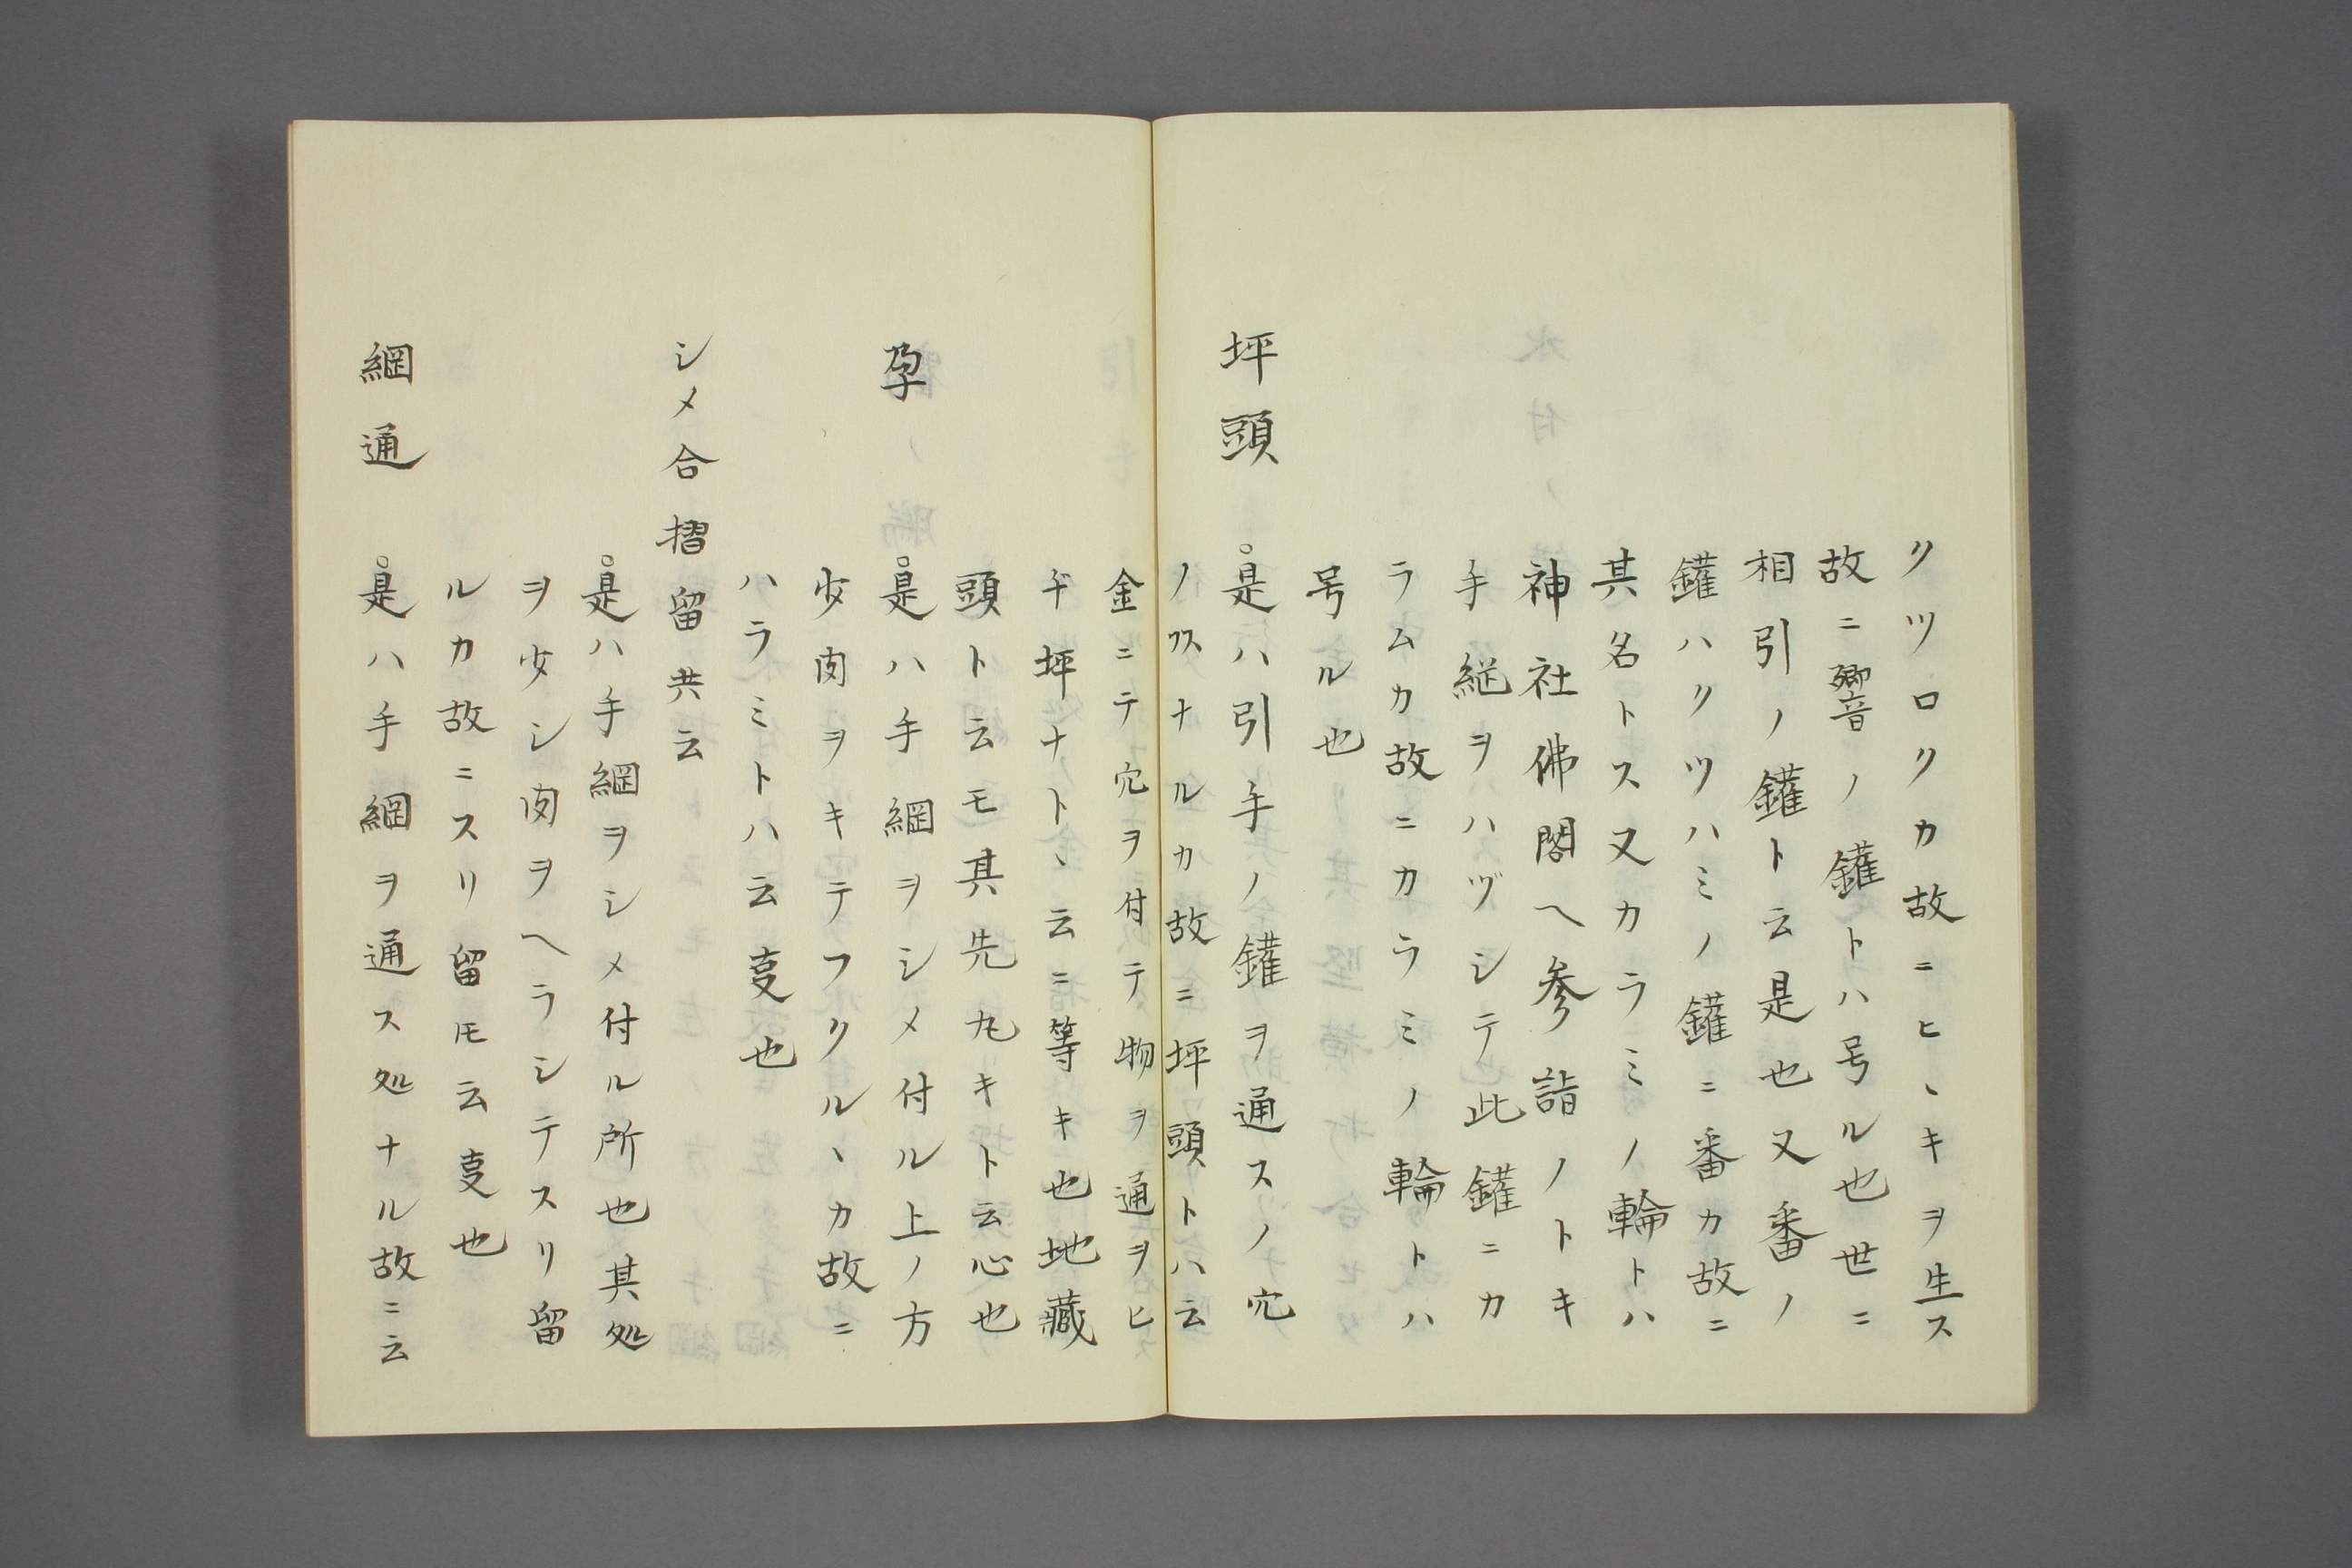 クツロクカ故ニヒヽキヲ生ス
故ニ響ノ鑵トハ号ル也世ニ
相引ノ鑵ト云是也又番ノ
鑵ハクツハミノ鑵ニ番カ故ニ
其名トス又カラミノ輪トハ
神社佛閣ヘ参詣ノトキ
手縦ヲハヅシテ此鑵ニカ
ラムカ故ニカラミノ輪トハ
号ル也
坪頭 是ハ引手ノ鑵ヲ通スノ穴
ノヿナルカ故ニ坪頭トハ云
金ニテ穴ヲ付テ物ヲ通ヲヒ
ヂ坪ナトヽ云ニ等キ也地藏
頭ト云モ其先丸キト云心也
孕 是ハ手綱ヲシメ付ル上ノ方
少肉ヲキテフクルヽカ故ニ
ハラミトハ云叓也
シメ合摺留共云
是ハ手綱ヲシメ付ル所也其処
ヲ少シ肉ヲヘラシテスリ留
ルカ故ニスリ留トモ云叓也
綱通 是ハ手綱ヲ通ス処ナル故ニ云